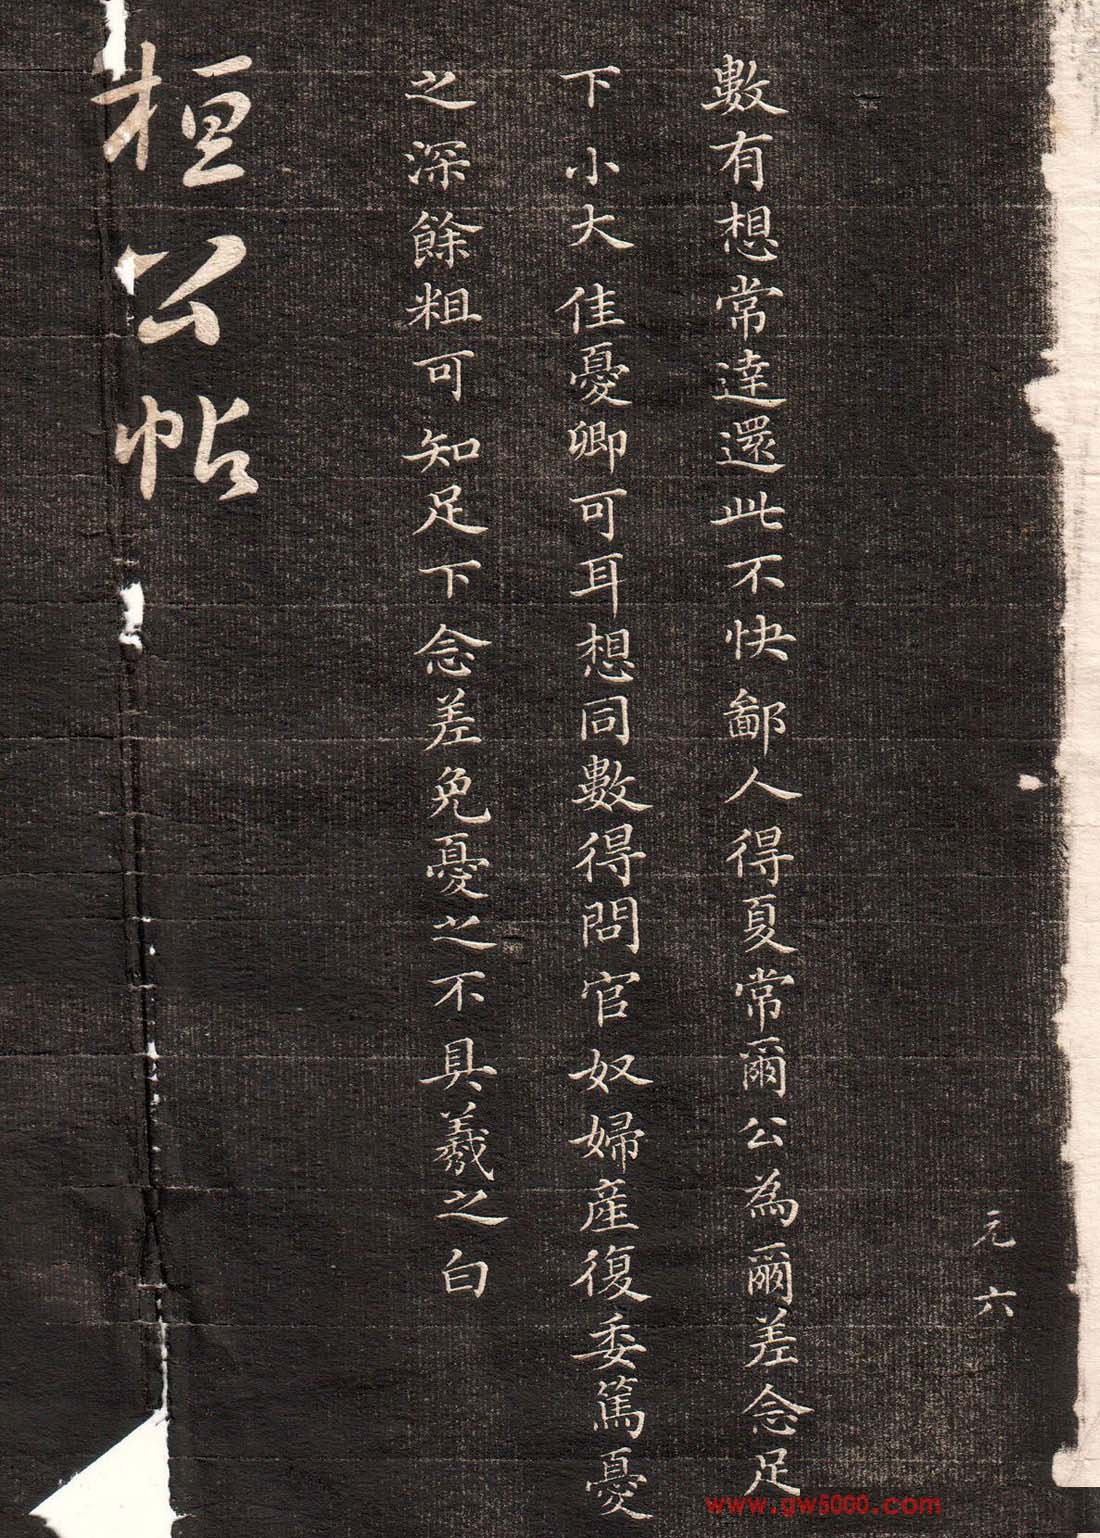 元六
數有想常達還此不快鄙人得夏常爾公為爾差念足
下小大佳憂卿可耳想同數得問官奴婦產復委篤憂
之深餘粗可知足下念差免憂之不具羲之白
桓公帖
www.gw5000.com